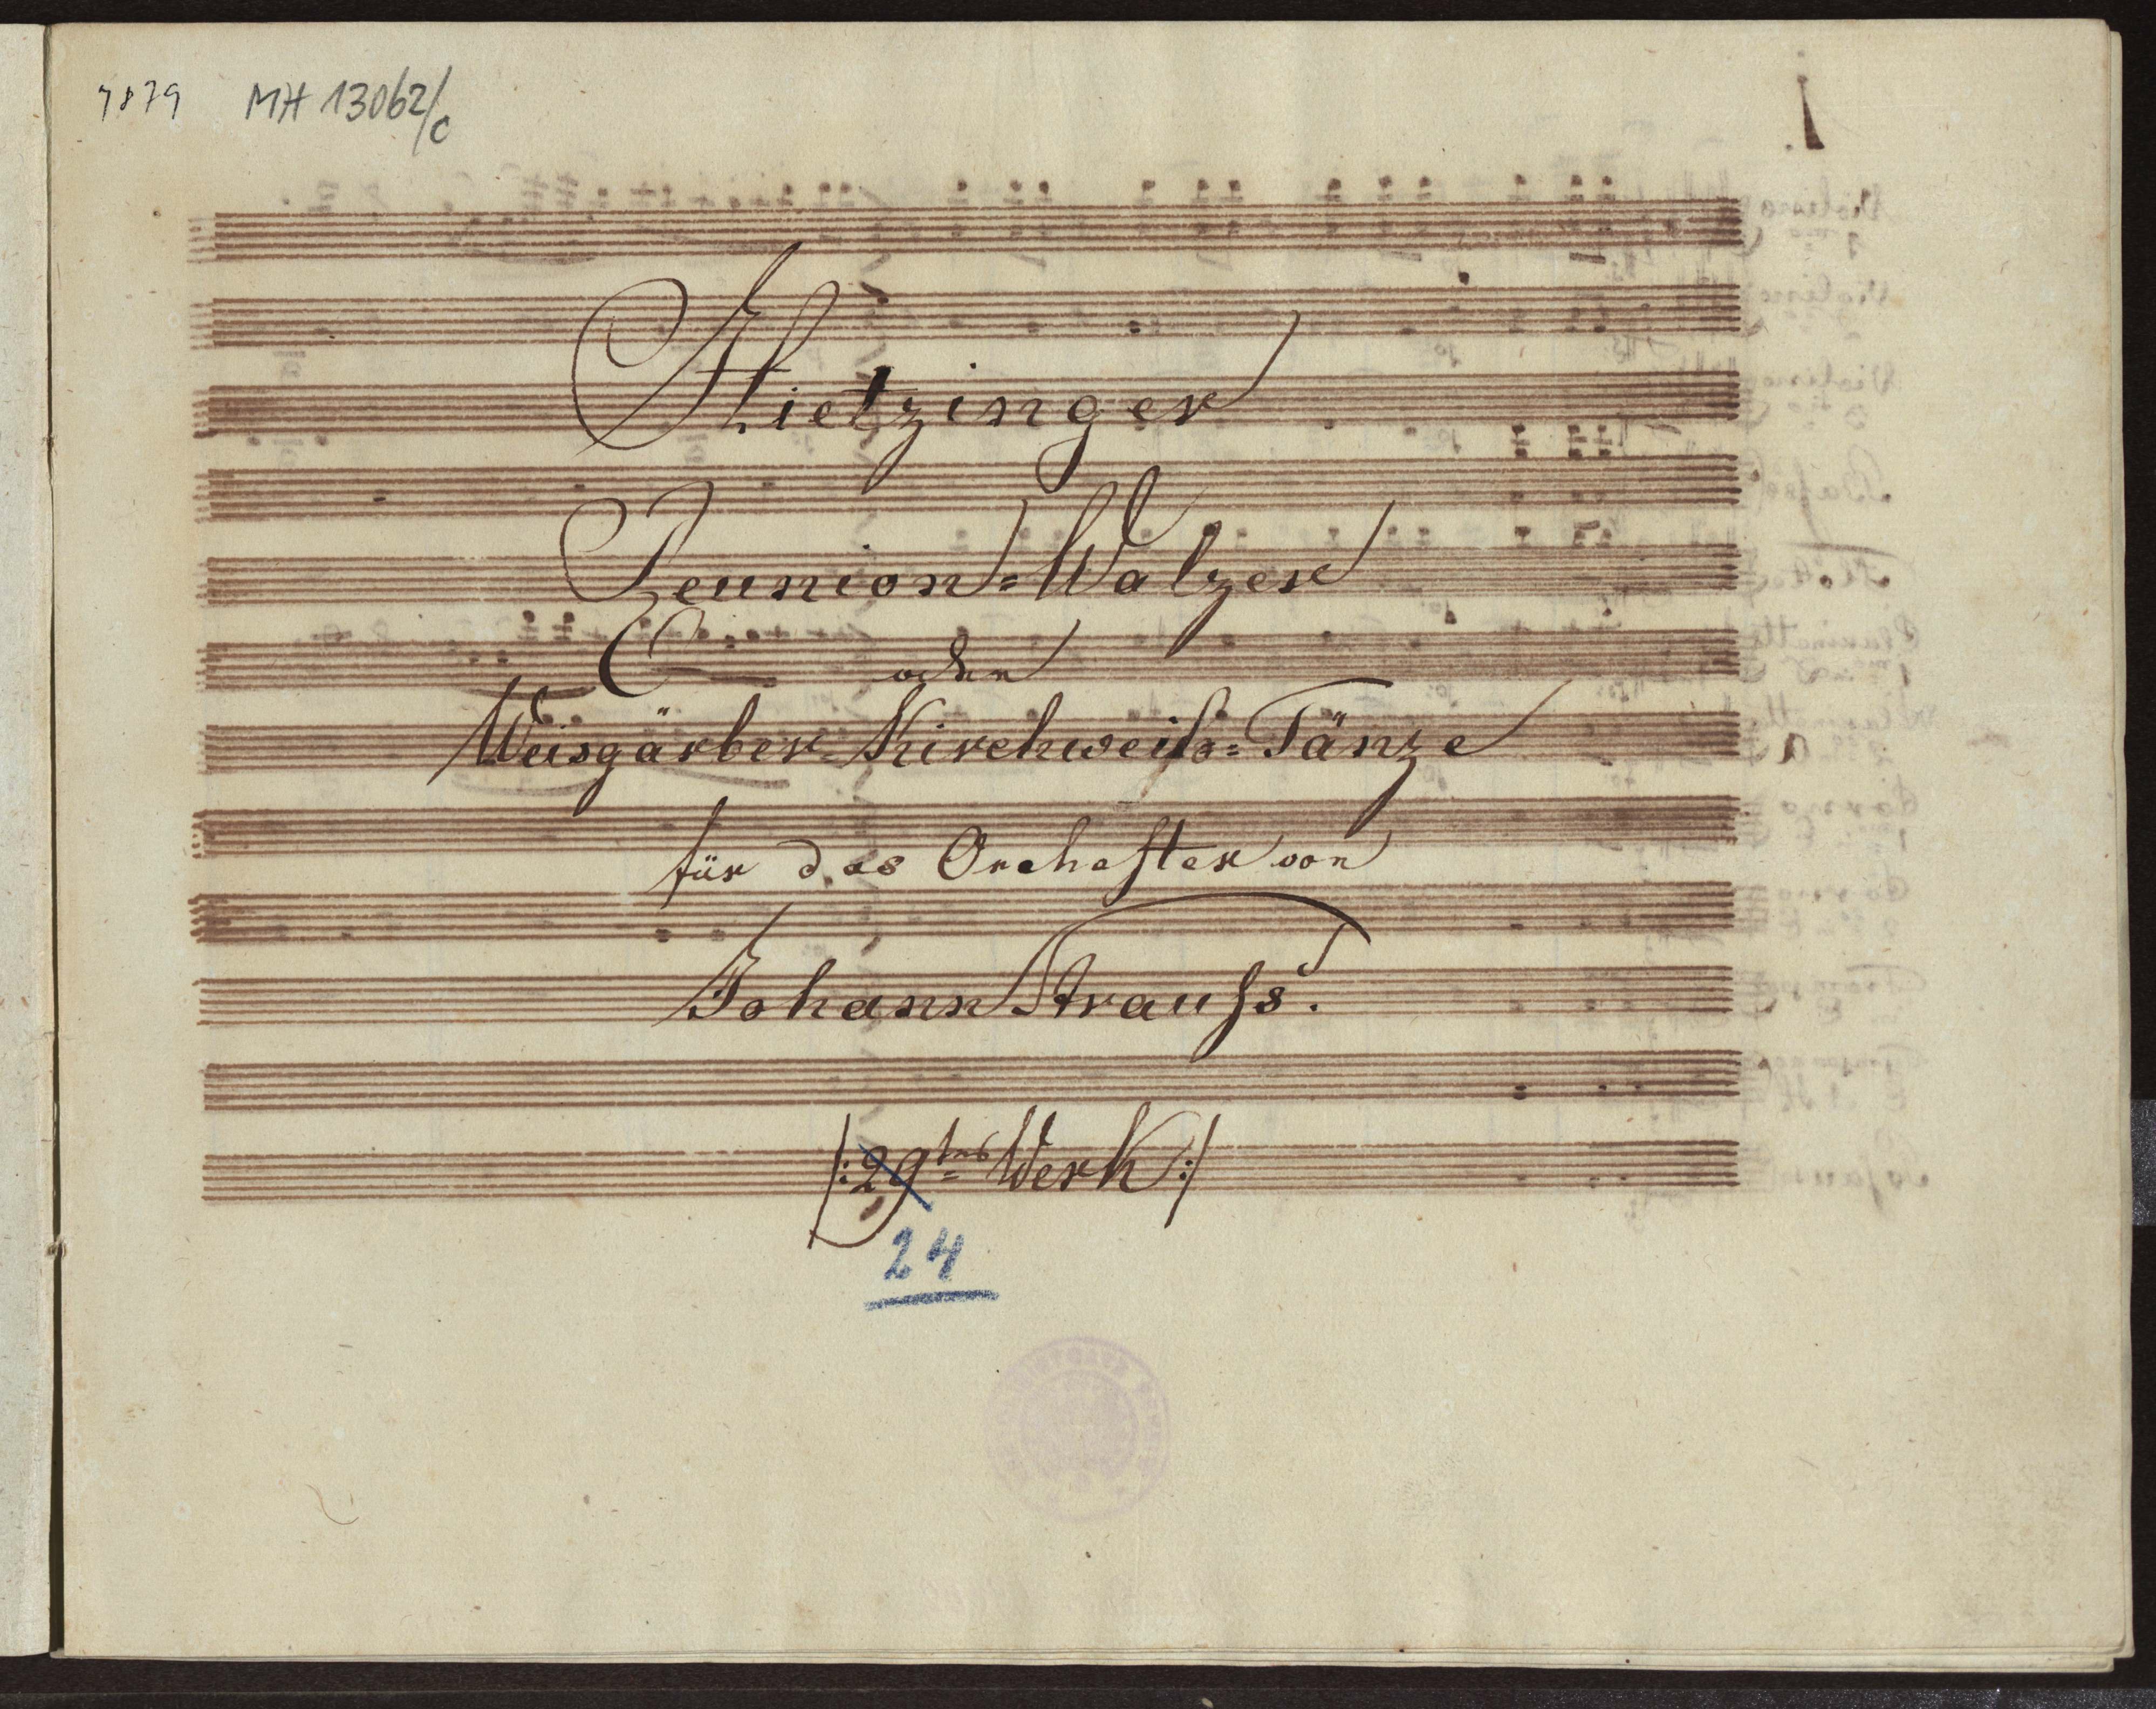 7879 MH 13062/c
1
Hietzinger
Reunion=Walzer
oder
Weisgärber=Kirchweih=Tänze
für das Orchester von
Johann Strauſs.
|: 29tes Werk :|
24